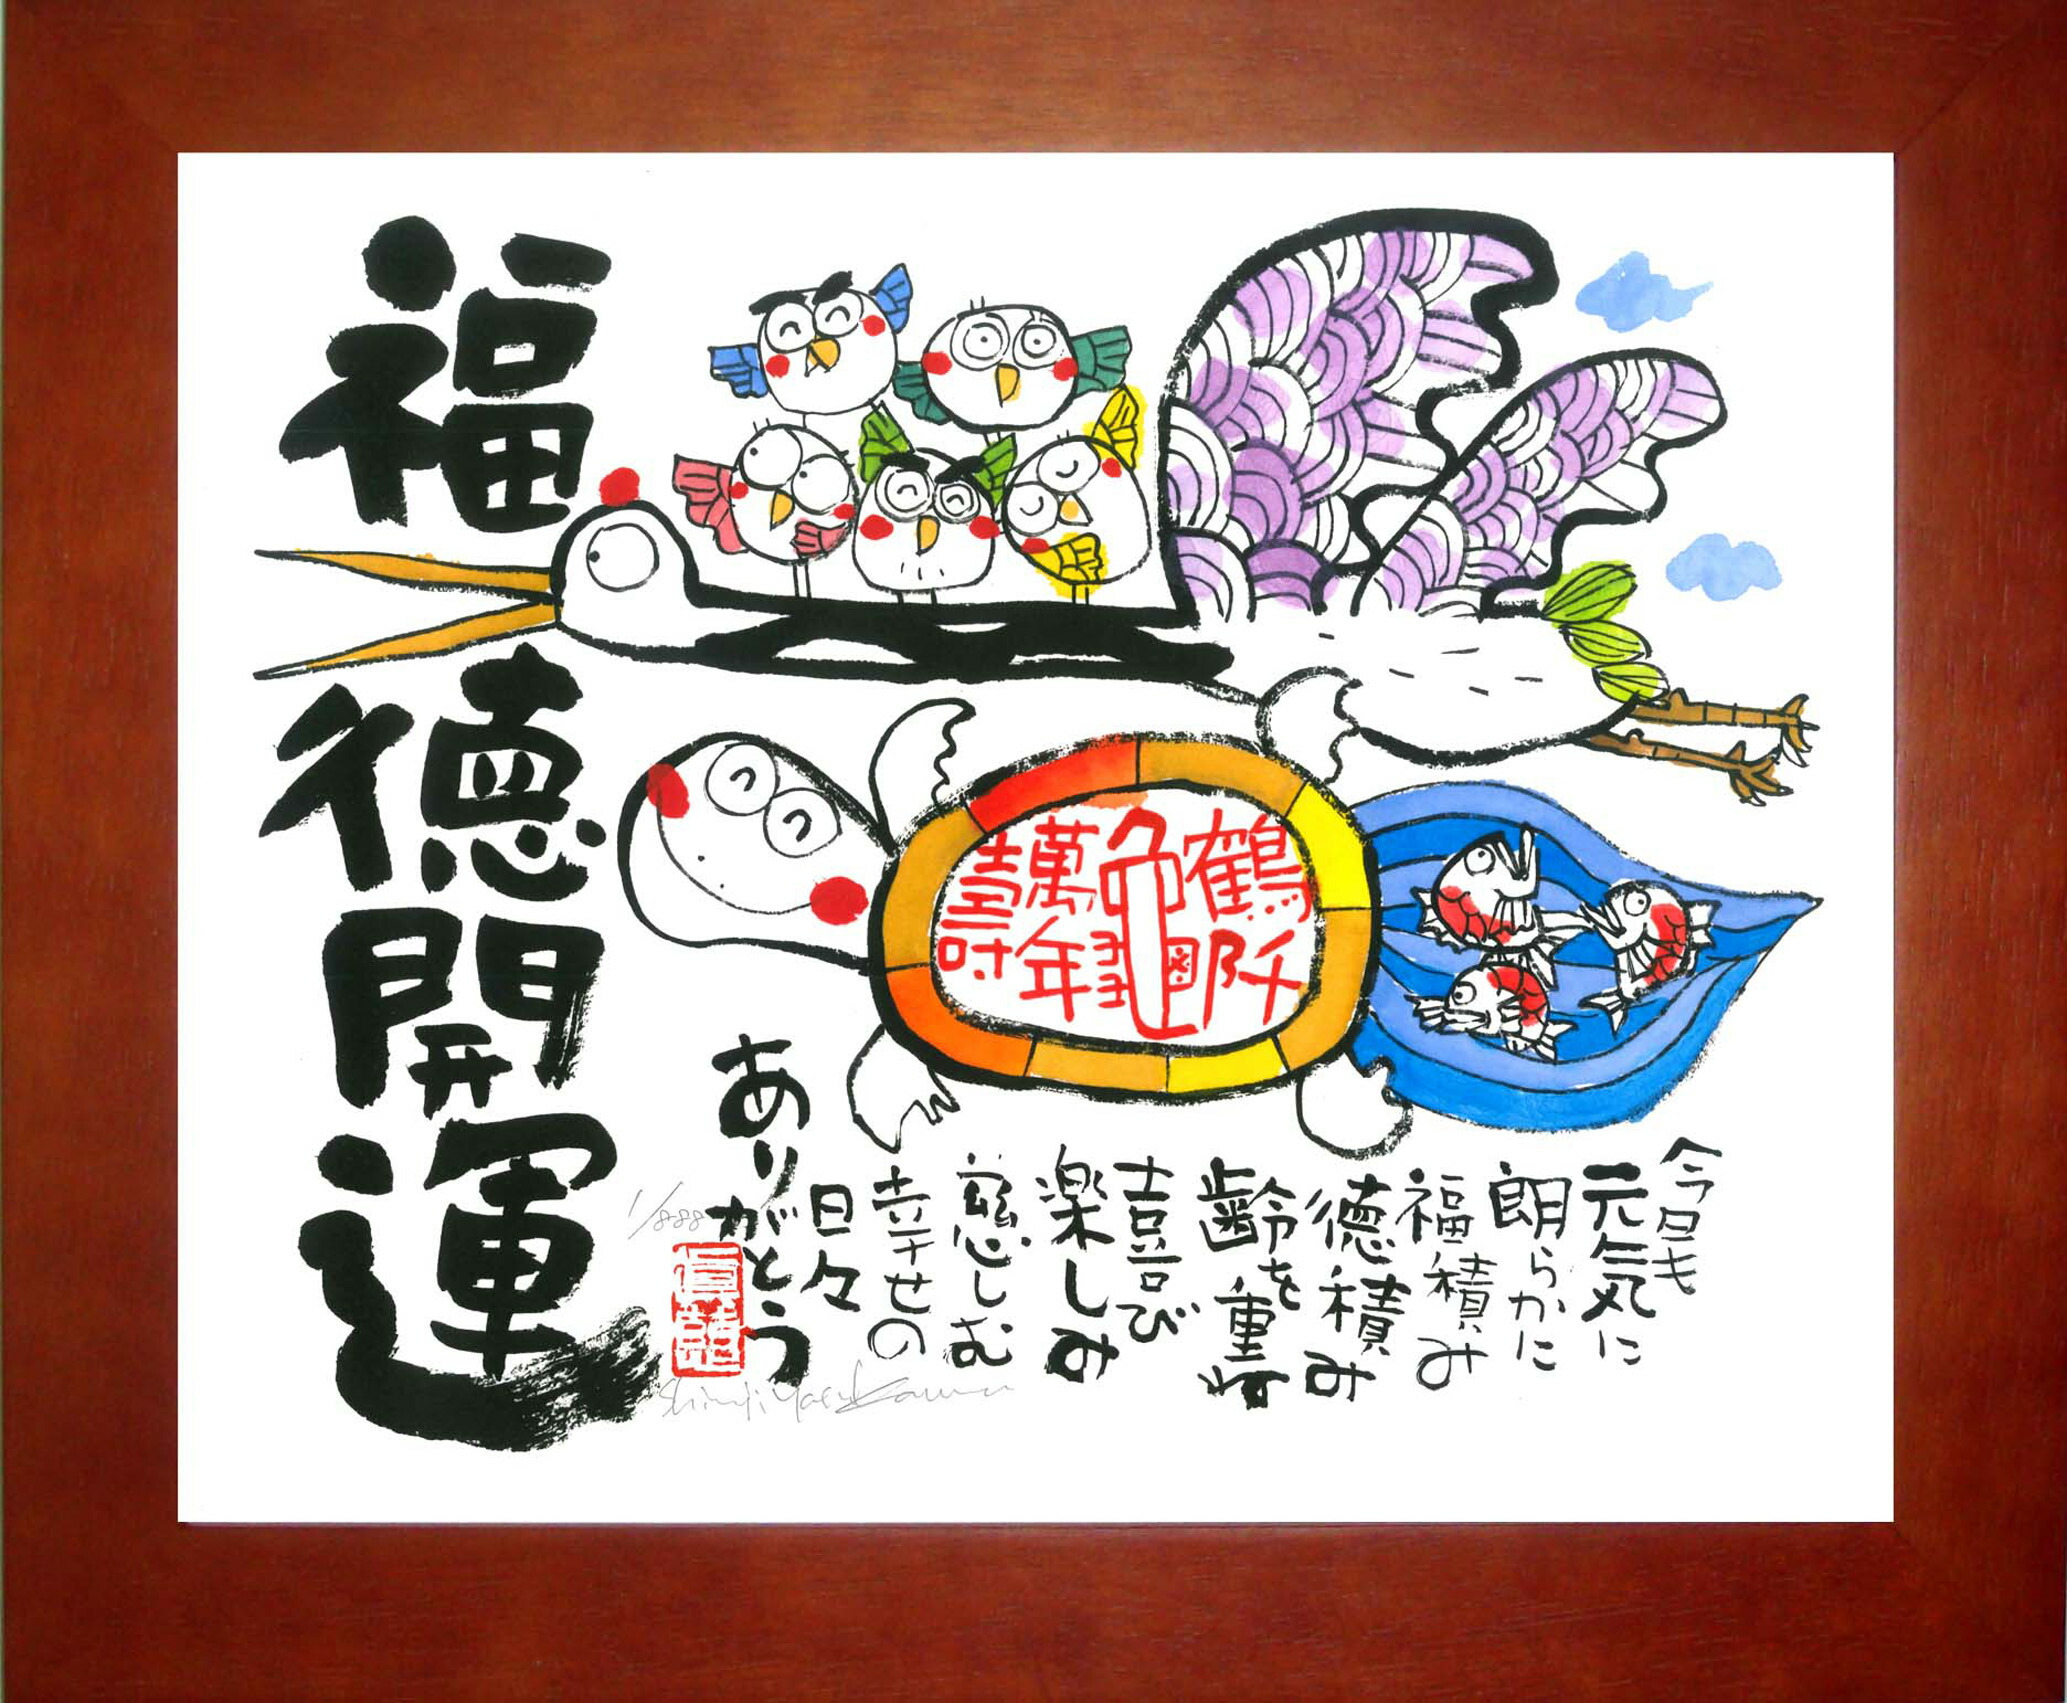 福徳開運
鶴阡
龜
萬年
壽
今日も
元気に
朗らかに
福積み
徳積み
齢を重ね
喜び
楽しみ
慈しむ
幸せの
日々
ありがとう
1/888